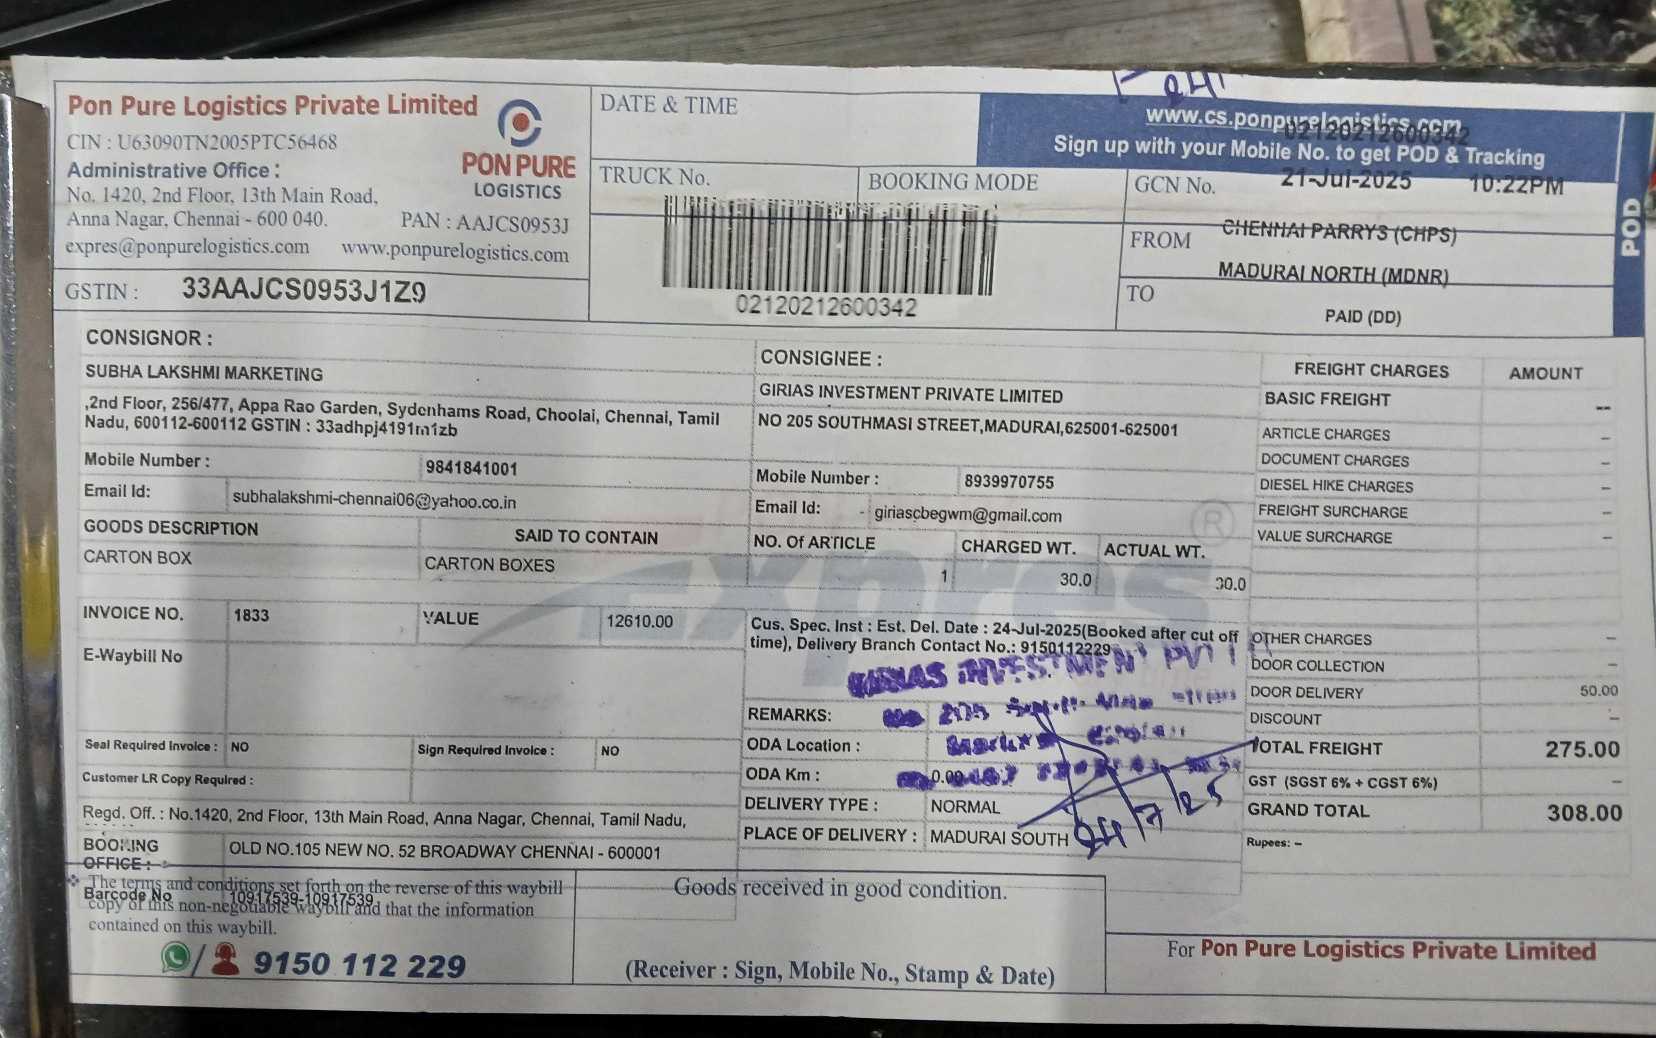 Pon Pure Logistics Private Limited
CIN : U63090TN2005PTC56468
Administrative Office :
No. 1420, 2nd Floor, 13th Main Road,
Anna Nagar, Chennai - 600 040. PAN : AAJCS0953J
expres@ponpurelogistics.com www.ponpurelogistics.com
PON PURE
LOGISTICS
GSTIN : 33AAJCS0953J1Z9
DATE & TIME
TRUCK No.
BOOKING MODE
02120212600342
www.cs.ponpurelogistics.com
02120212600342
Sign up with your Mobile No. to get POD & Tracking
GCN No. 21-Jul-2025 10:22PM
FROM CHENNAI PARRYS (CHPS)
MADURAI NORTH (MDNR)
TO
PAID (DD)
POD
CONSIGNOR :
SUBHA LAKSHMI MARKETING
,2nd Floor, 256/477, Appa Rao Garden, Sydenhams Road, Choolai, Chennai, Tamil
Nadu, 600112-600112 GSTIN : 33adhpj4191m1zb
Mobile Number : 9841841001
Email Id: subhalakshmi-chennai06@yahoo.co.in
GOODS DESCRIPTION SAID TO CONTAIN
CARTON BOX CARTON BOXES
CONSIGNEE :
GIRIAS INVESTMENT PRIVATE LIMITED
NO 205 SOUTHMASI STREET,MADURAI,625001-625001
Mobile Number : 8939970755
Email Id: - giriascbegwm@gmail.com
NO. Of ARTICLE CHARGED WT. ACTUAL WT.
1 30.0 30.0
Expres ®
FREIGHT CHARGES AMOUNT
BASIC FREIGHT --
ARTICLE CHARGES –
DOCUMENT CHARGES –
DIESEL HIKE CHARGES –
FREIGHT SURCHARGE –
VALUE SURCHARGE –
INVOICE NO. 1833 VALUE 12610.00
E-Waybill No
Seal Required Invoice : NO Sign Required Invoice : NO
Customer LR Copy Required :
Regd. Off. : No.1420, 2nd Floor, 13th Main Road, Anna Nagar, Chennai, Tamil Nadu,
BOOKING
OFFICE : OLD NO.105 NEW NO. 52 BROADWAY CHENNAI - 600001
Cus. Spec. Inst : Est. Del. Date : 24-Jul-2025(Booked after cut off
time), Delivery Branch Contact No.: 9150112229
GIRIAS INVESTMENT PVT
REMARKS: 205
ODA Location :
ODA Km : 0.00
DELIVERY TYPE : NORMAL
PLACE OF DELIVERY : MADURAI SOUTH
24/7/25
OTHER CHARGES –
DOOR COLLECTION –
DOOR DELIVERY 50.00
DISCOUNT –
TOTAL FREIGHT 275.00
GST (SGST 6% + CGST 6%) –
GRAND TOTAL 308.00
Rupees: –
The terms and conditions set forth on the reverse of this waybill
Barcode No 10917539-10917539
copy of this non-negotiable waybill and that the information
contained on this waybill.
/ 9150 112 229
Goods received in good condition.
(Receiver : Sign, Mobile No., Stamp & Date)
For Pon Pure Logistics Private Limited